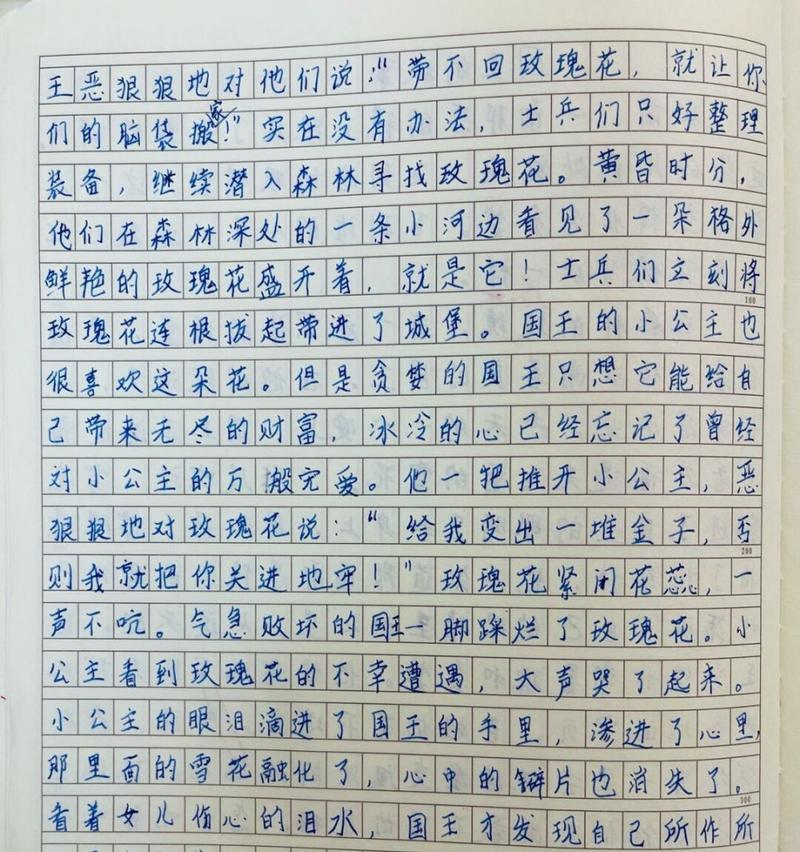 王恶狠狠地对他们说:“带不回玫瑰花,就让你
们的脑袋搬家!”实在没有办法,士兵们只好整理
装备,继续潜入森林寻找玫瑰花。黄昏时分,
他们在森林深处的一条小河边看见了一朵格外
鲜艳的玫瑰花盛开着,就是它!士兵们立刻将
100
玫瑰花连根拔起带进了城堡。国王的小公主也
很喜欢这朵花。但是贪婪的国王只想它能给自
己带来无尽的财富,冰冷的心已经忘记了曾经
对小公主的万搬宠爱。他一把推开小公主,恶
狠狠地对玫瑰花说:“给我变出一堆金子,否
200
则我就把你关进地牢!”玫瑰花紧闭花蕊,一
声不吭。气急败坏的国王一脚踩烂了玫瑰花。小
公主看到玫瑰花的不幸遭遇,大声哭了起来。
小公主的眼泪滴进了国王的手里,渗进了心里,
那里面的雪花融化了,心中的碎片也消失了。
300
看着女儿伤心的泪水,国王才发现自己所作所